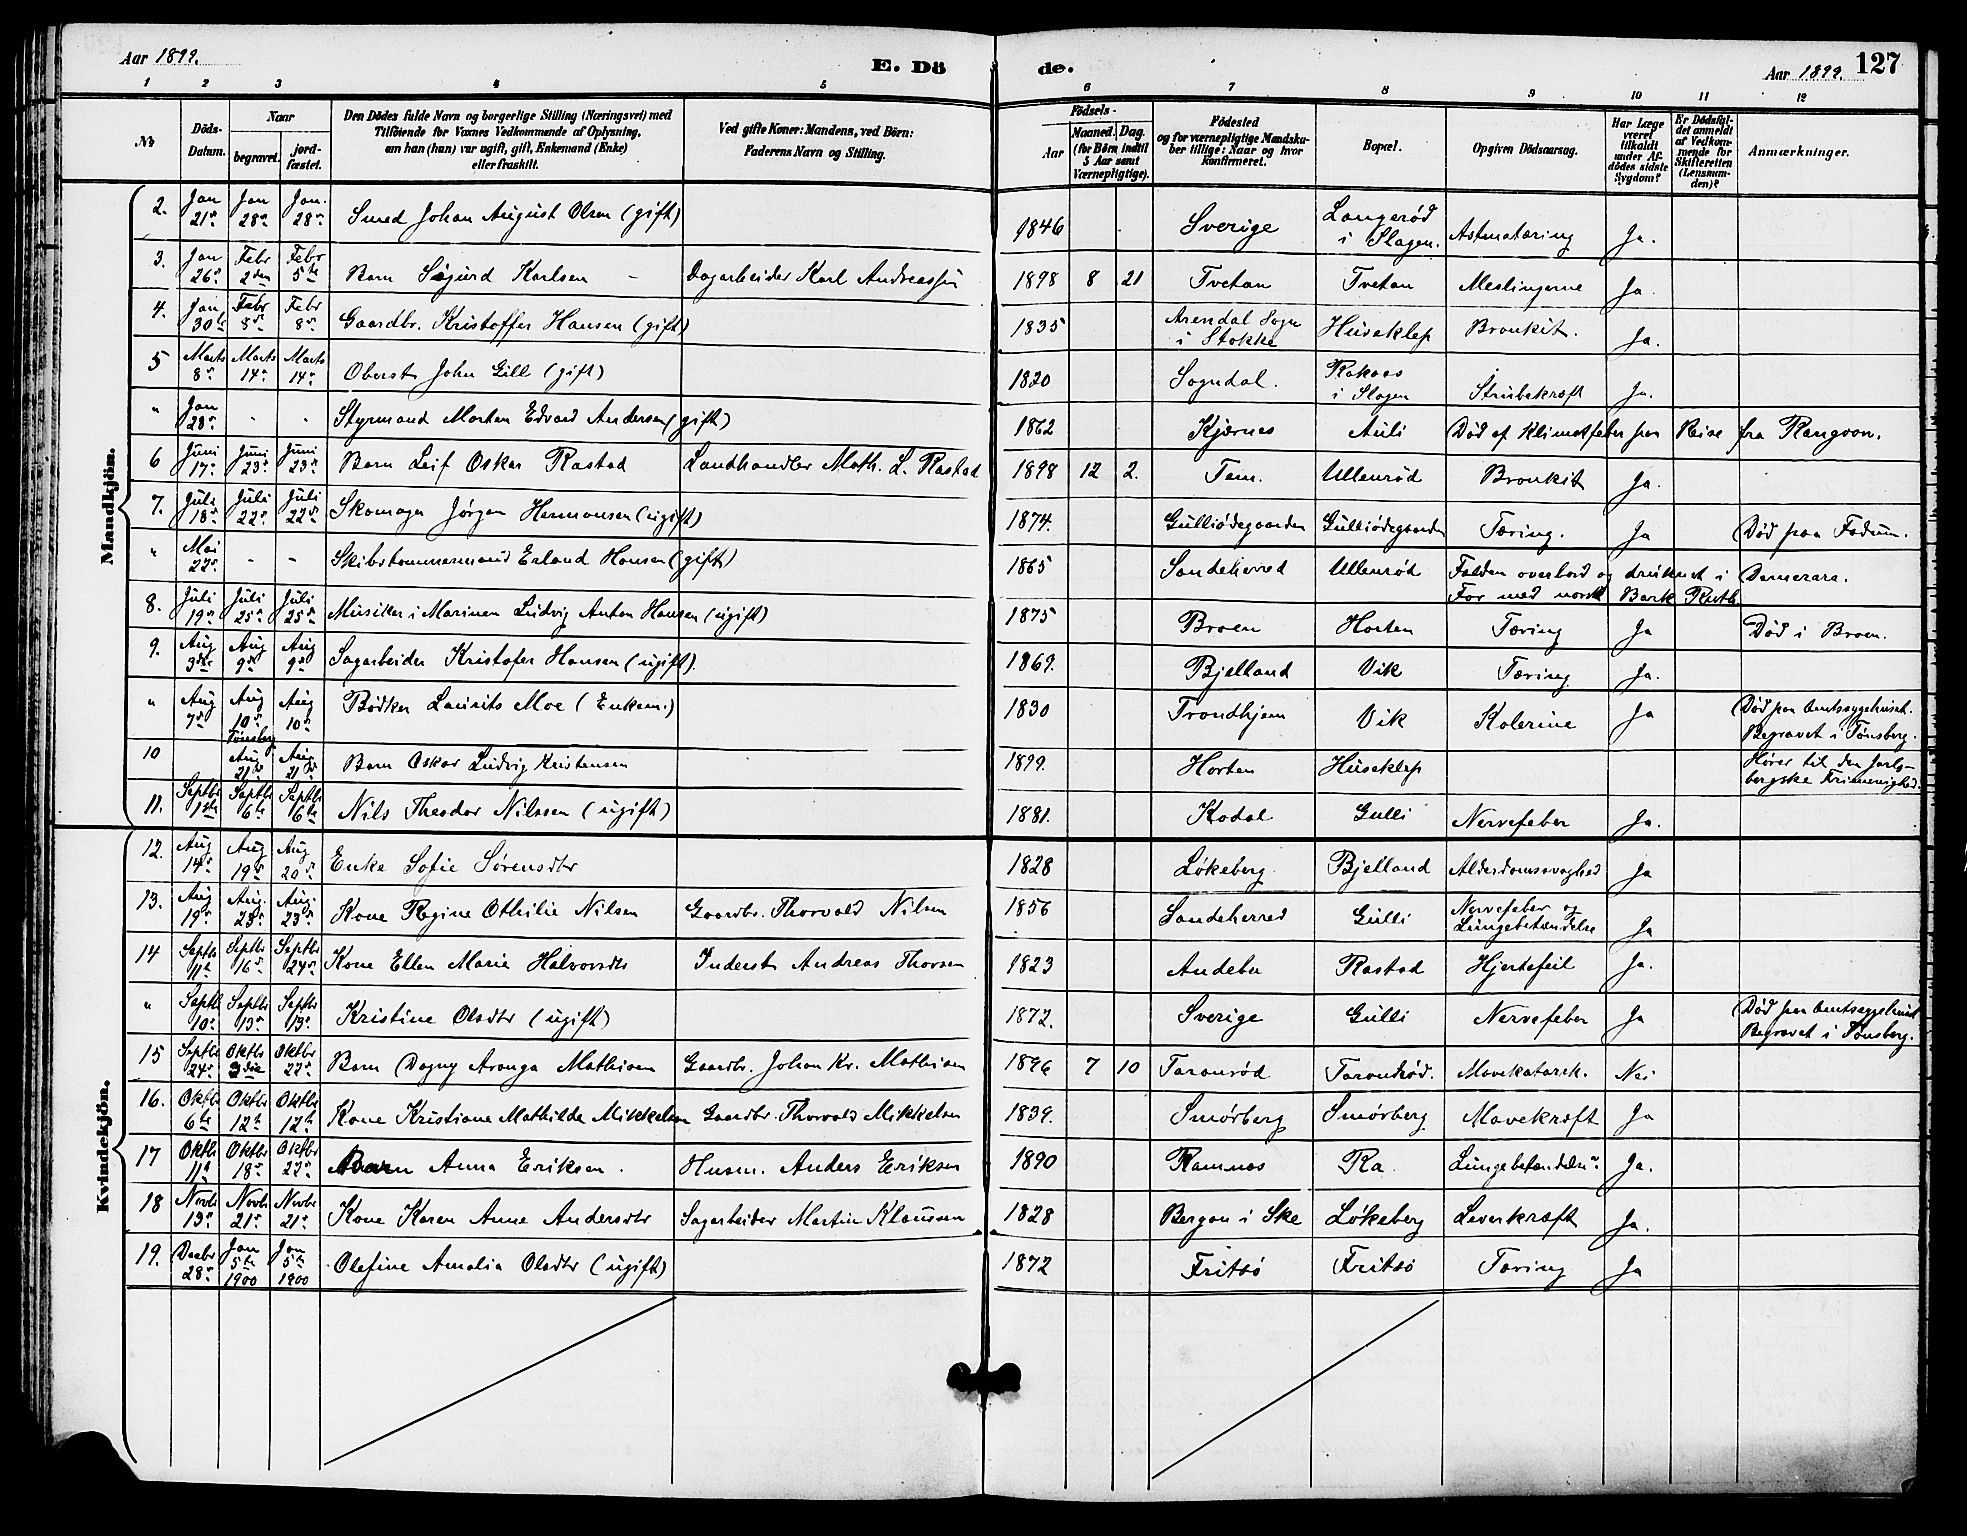 Aar 1899. E. Dö de. Aar 1899. 127
1 2 3 4 5 6 7 8 9 10 11 12
No
Döds-
Datum.
Naar
begravet.
jord-
fæstet.
Den Dödes fulde Navn og borgerlige Stilling (Næringsvei) med
Tilföiende for Voxnes Vedkommende af Oplysning,
om han (hun) var ugift, gift, Enkemand (Enke)
eller fraskilt.
Ved gifte Koner: Mandens, ved Börn:
Faderens Navn og Stilling.
Födsels-
Aar
Maaned. Dag.
(for Börn indtil
5 Aar samt
Værnepligtige).
Födested
og for værnepligtige Mandska-
ber tillige: Naar og hvor
konfirmeret.
Bopæl.
Opgiven Dödsaarsag.
Har Læge
været
tilkaldt
under Af-
dödes sidste
Sygdom?
Er Dödsfal-
det anmeldt
af Vedkom-
mende for
Skifteretten
(Lensman-
den)?
Anmærkninger.
Mandkjön.
2. Jan 21de Jan 28de Jan. 28de Smed Johan August Olsen (gift) 1846 Sverige Langerød i Slagen. Astmatæring Ja.
3. Jan 26de Febr 2den Febr 5te Barn Sigurd Karlsen - Dagarbeider Karl Andreassen 1898 8 21 Tvetan Tvetan Meslingerne Ja.
4. Jan 30te Febr 8de Febr 8de Gaardbr. Kristoffer Hansen (gift) 1835 Arendal Sogn i Stokke Huseklep Bronkit. Ja.
5 Marts 8de Marts 14de Marts 14de Oberst John Gill (gift) 1820 Sogndal. i Slagen Strubekræft Ja.
" Jan 28de - - Styrmand Morten Edvard Andersen (gift) 1862 Kjærnes Auli Død af Klimatfeber paa Reise fra Rangoon.
6 Juni 17de Juni 23de Juni 23de Barn Leif Oskar Rastad Landhandler Math. L. Rastad 1898 12 2. Tem. Ullenrød Bronkit Ja.
7. Juli 18de Juli 22de Juli 22de Skomager Jørgen Hermansen (ugift) 1874. Gulliødegaarden Gulliødegaarden Tæring. Ja Død paa Fadum.
" Mai 27de - - Skibstømmermand Erland Hansen (gift) 1865 Sandeherred Ullenrød Falden overbord og druknet i Demerara.
For med norsk Bark Ruth
8. Juli 19de Juli 25de Juli 25de Musiker i Marinen Ludvig Anton Hansen (ugift) 1875 Broen Horten Tæring Ja Død i Broen.
9. Aug 3die Aug 9de Aug 9de Sagarbeider Kristofer Hansen (ugift). 1869. Bjelland Vik Tæring Ja.
" Aug 7de Aug 10de Tønsberg Aug 10de Bødker Laurits Moe (Enkem.) 1830 Trondhjem Vik Kolerine Ja Død paa Amtssygehuset.
Begravet i Tønsberg.
10 Aug 21de Aug. 21de Barn Oskar Ludvig Kristensen 1899. Horten Huseklep Hører til den Jarls-
bergske Frimenighed.
11. Septbr 1ste Septbr 6te Septbr 6te Nils Theodor Nilssen (ugift) 1881. Kodal Gulli Nervefeber Ja.
Kvindekjön.
12. Aug 14de Aug 19de Aug 20de Enke Sofie Sørensdtr 1828 Løkeberg. Bjelland Alderdomssvaghed Ja
13. Aug 19de Aug. 23de Aug. 23de Kone Regine Othilie Nilsen Gaardbr. Thorvald Nilsen 1856 Sandeherred Gulli Nervefeber og
Lungebetændelse Ja
14 Septbr 11te Septbr 16de Septbr 24de Kone Ellen Marie Halvorsdtr Inderst Andreas Thorsen 1823 Andebu Rastad Hjertefeil Ja.
" Septbr 10de Septbr 13de Septbr 13de Kristine Olsdtr (ugift) 1872. Sverige Gulli Nervefeber Ja Død paa Amtssygehuset
Begravet i Tønsberg.
15 Septbr 24de Oktbr 3die Oktbr 22de Barn Dagny Aronga Mathisen Gaardbr. Johan Kr. Mathisen 1896 7 10 Taranrød Tarandrød. Mavekatarrh. Nei
16. Oktbr 6te Oktbr 12te Oktbr 12te Kone Kristiane Mathilde Mikkelsen Gaardbr. Thorvald Mikkelsen 1839. Smørberg Smørberg Mavekræft Ja
17 Oktbr 11te Oktbr 18de Oktbr 22de Barn Anna Eriksen. Husm. Anders Eriksen 1890 Ramnes Ra Lungebetændelse. Ja.
18 Novbr 13de Novbr 21de Novbr 21de Kone Karen Anne Andersdtr Sagarbeider Martin Klaussen 1828 Bergan i Ske Løkeberg Leverkræft Ja.
19. Decbr 28de Jan 5te 1900 Jan 5te 1900 Olefine Amalia Olsdtr (ugift) 1872 Fritsø Fritsø Tæring Ja